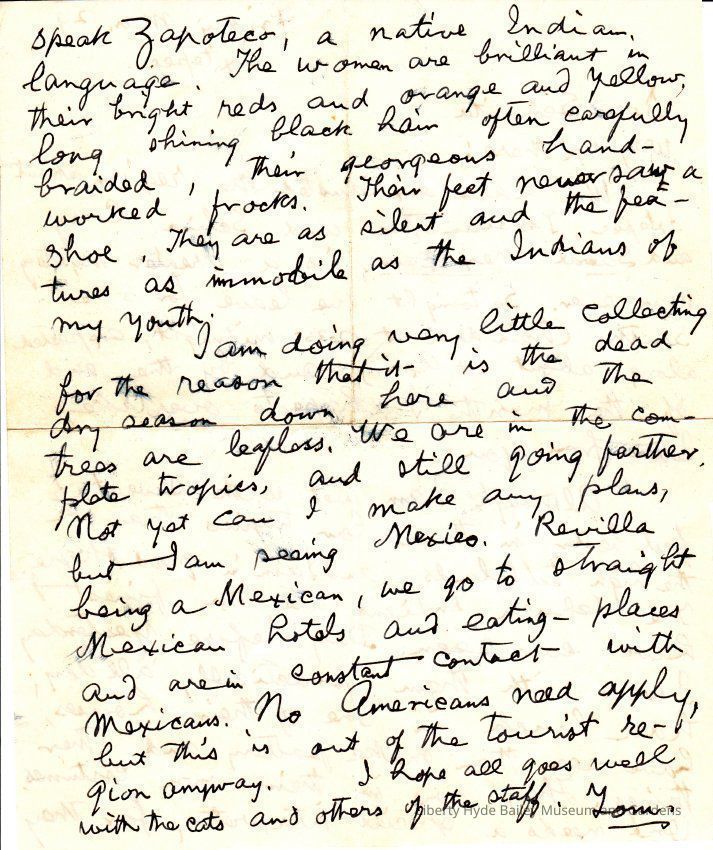 speak Zapoteco, a native Indian
language. The women are brilliant in
their bright reds and orange and yellow,
long shining black hair often carefully
braided, their georgeous hand-
worked frocks. Their feet never saw a
shoe. They are as silent and the fea-
tures as immobile as the Indians of
my youth.
I am doing very little collecting
for the reason that it is the dead
dry season down here and the
trees are leafless. We are in the com-
plete tropics, and still going farther.
Not yet can I make any plans,
but I am seeing Mexico. Revilla
being a Mexican, we go to straight
Mexican hotels and eating-places
and are in constant contact with
Mexicans. No Americans need apply,
but this is out of the tourist re-
gion anyway. I hope all goes well
with the cats and others of the staff.
Liberty Hyde Bailey Museum and Gardens